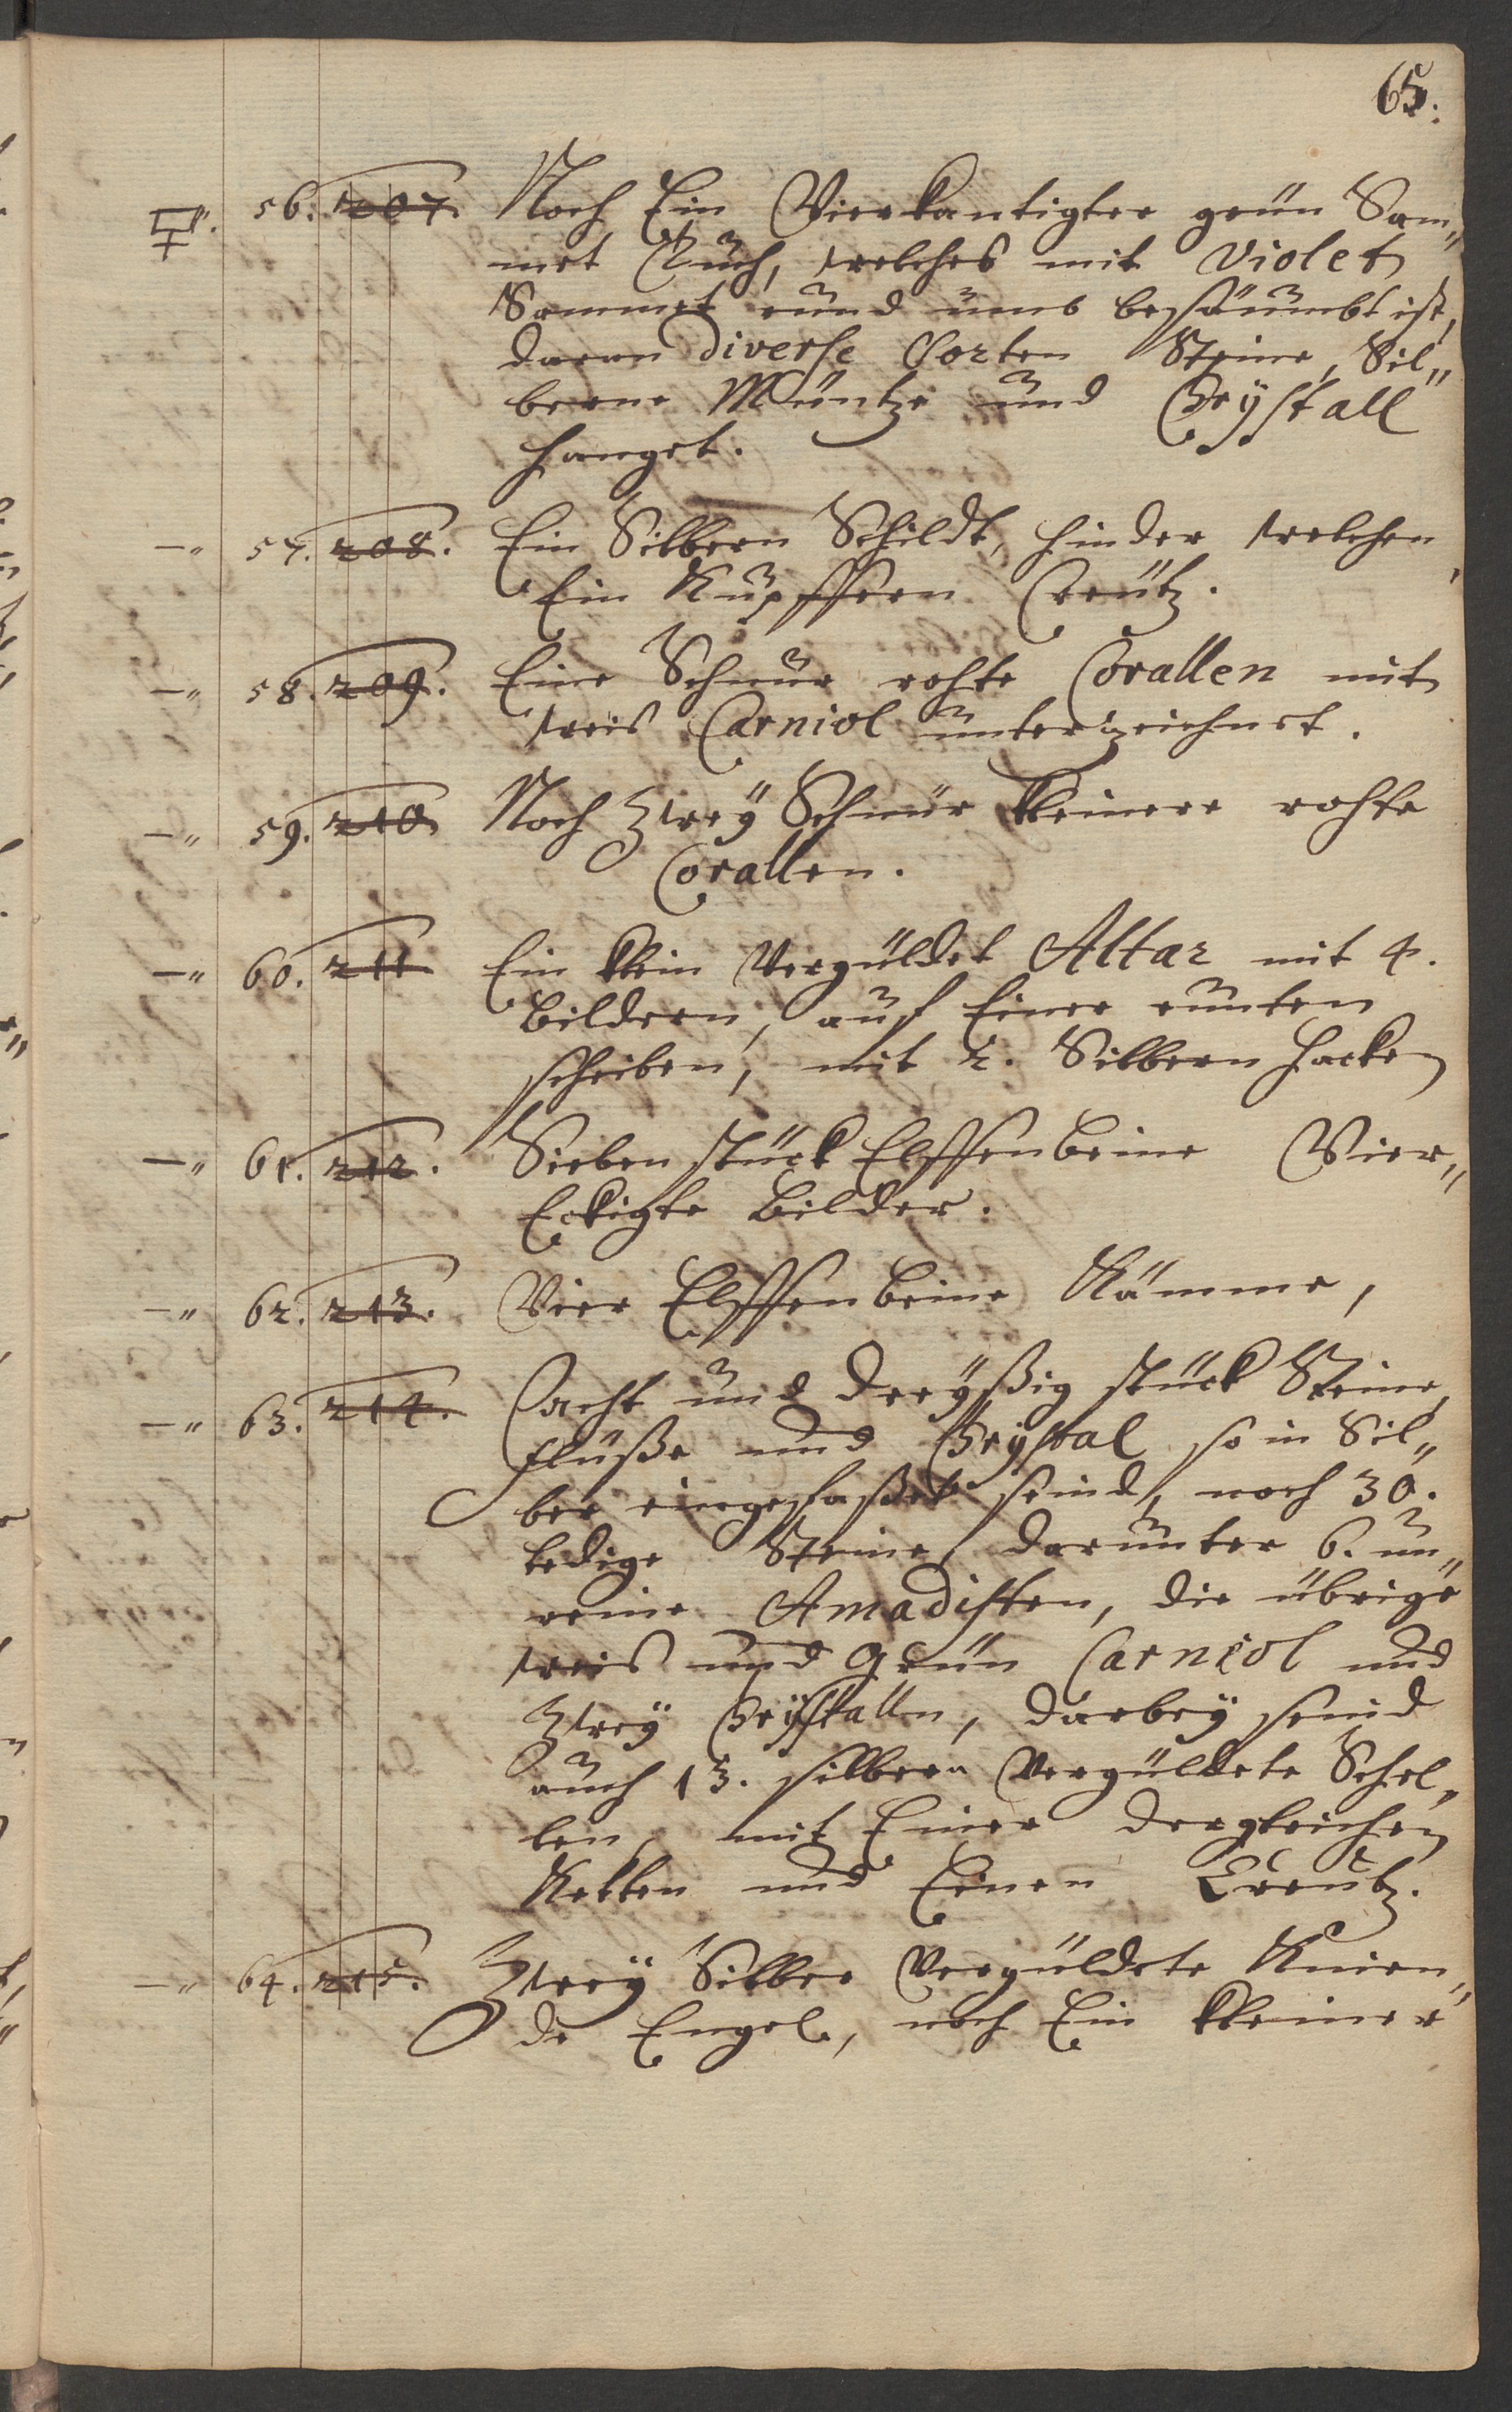 65.
56. 207. Noch Ein Vierkantigter grün Sam„
met Tuch, welches mit Violet
Sammet rund umb besäumbt ist,
daran diverse Sorten Steine, Sil„
berne Müntze und Crÿstall
hanget.
—„ 57. 208. Ein Silbern Schildt, hinder welchen
Ein Kupffern Creütz.
—„ 58. 209. Eine Schnur rohte Corallen mit
weis Carniol unterzeichnet.
—„ 59. 210 Noch Zweÿ Schnür kleinere rohte
Corallen.
—„ 60. 211 Ein klein Vergüldet Altar mit 4.
Bildern, auf Einer runten
scheiben, mit 2. Silbern Hacken
—„ 61. 212. Sieben stück Elffenbeine Vier„
Eckigte Bilder.
—„ 62. 213. Vier Elffenbeine Kämme,
—„ 63. 214. acht und dreÿßig stück Steine,
flüße und Crÿstal so in Sil„
ber eingefaßet seind, noch 30.
ledige Steine, darunter 6. un„
reine Amadisten, die übrige
weis und grün Carniol und
Zweÿ Crÿstallen, darbeÿ seind
auch 13. silbern Vergüldete Schel„
len, mit Einer dergleichen
Ketten und Einen Creutz.
—„ 64. 215. Zweÿ Silber Vergüldete Knien„
de Engel, noch Ein kleiner